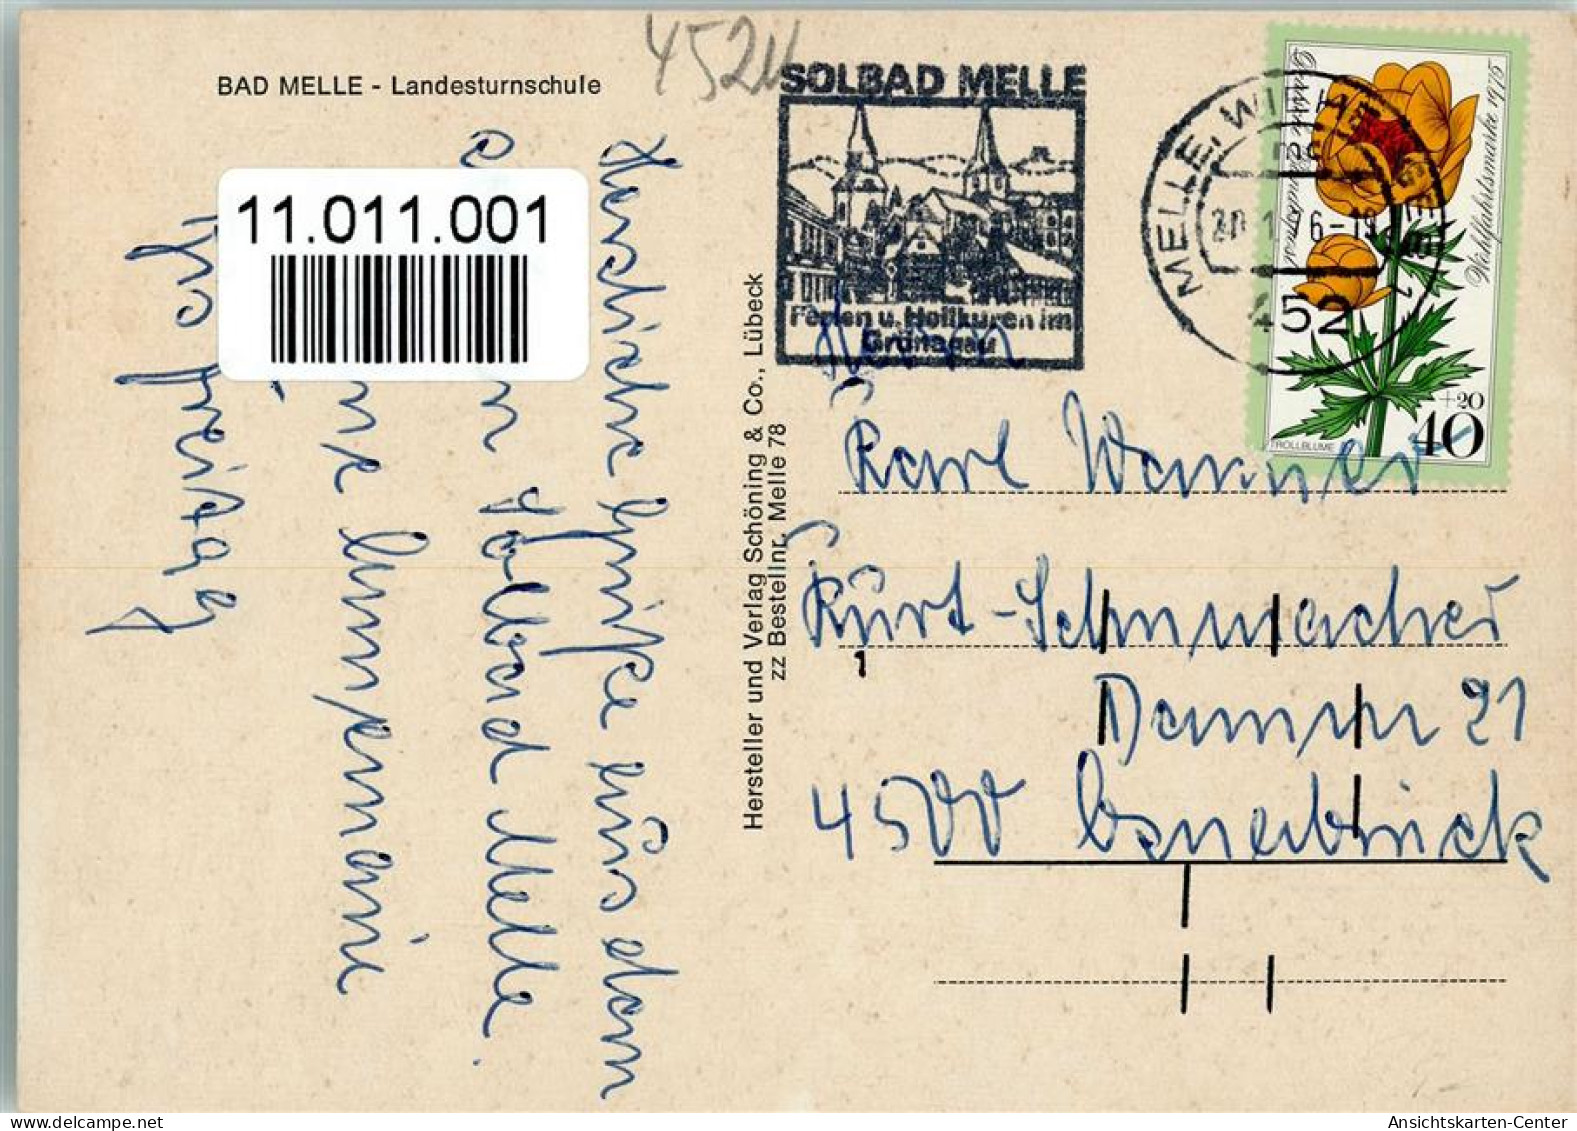 BAD MELLE - Landesturnschule
4520
11.011.001
SOLBAD MELLE
Ferien u. Heilkuren im
Grönegau
MELLE, WIEH
20.1. 6-19
4520
Deutsche Bundespost
Wohlfahrtsmarke 1975
TROLLBLUME
+20
40
Herzliche Grüße aus dem
Solbad Melle.
Hersteller und Verlag Schöning & Co., Lübeck
zz Bestellnr. Melle 78
Herrn
Karl Wanner
Kurt-Schumacher
Damm 21
4500 Osnabrück
1
Ansichtskarten-Center